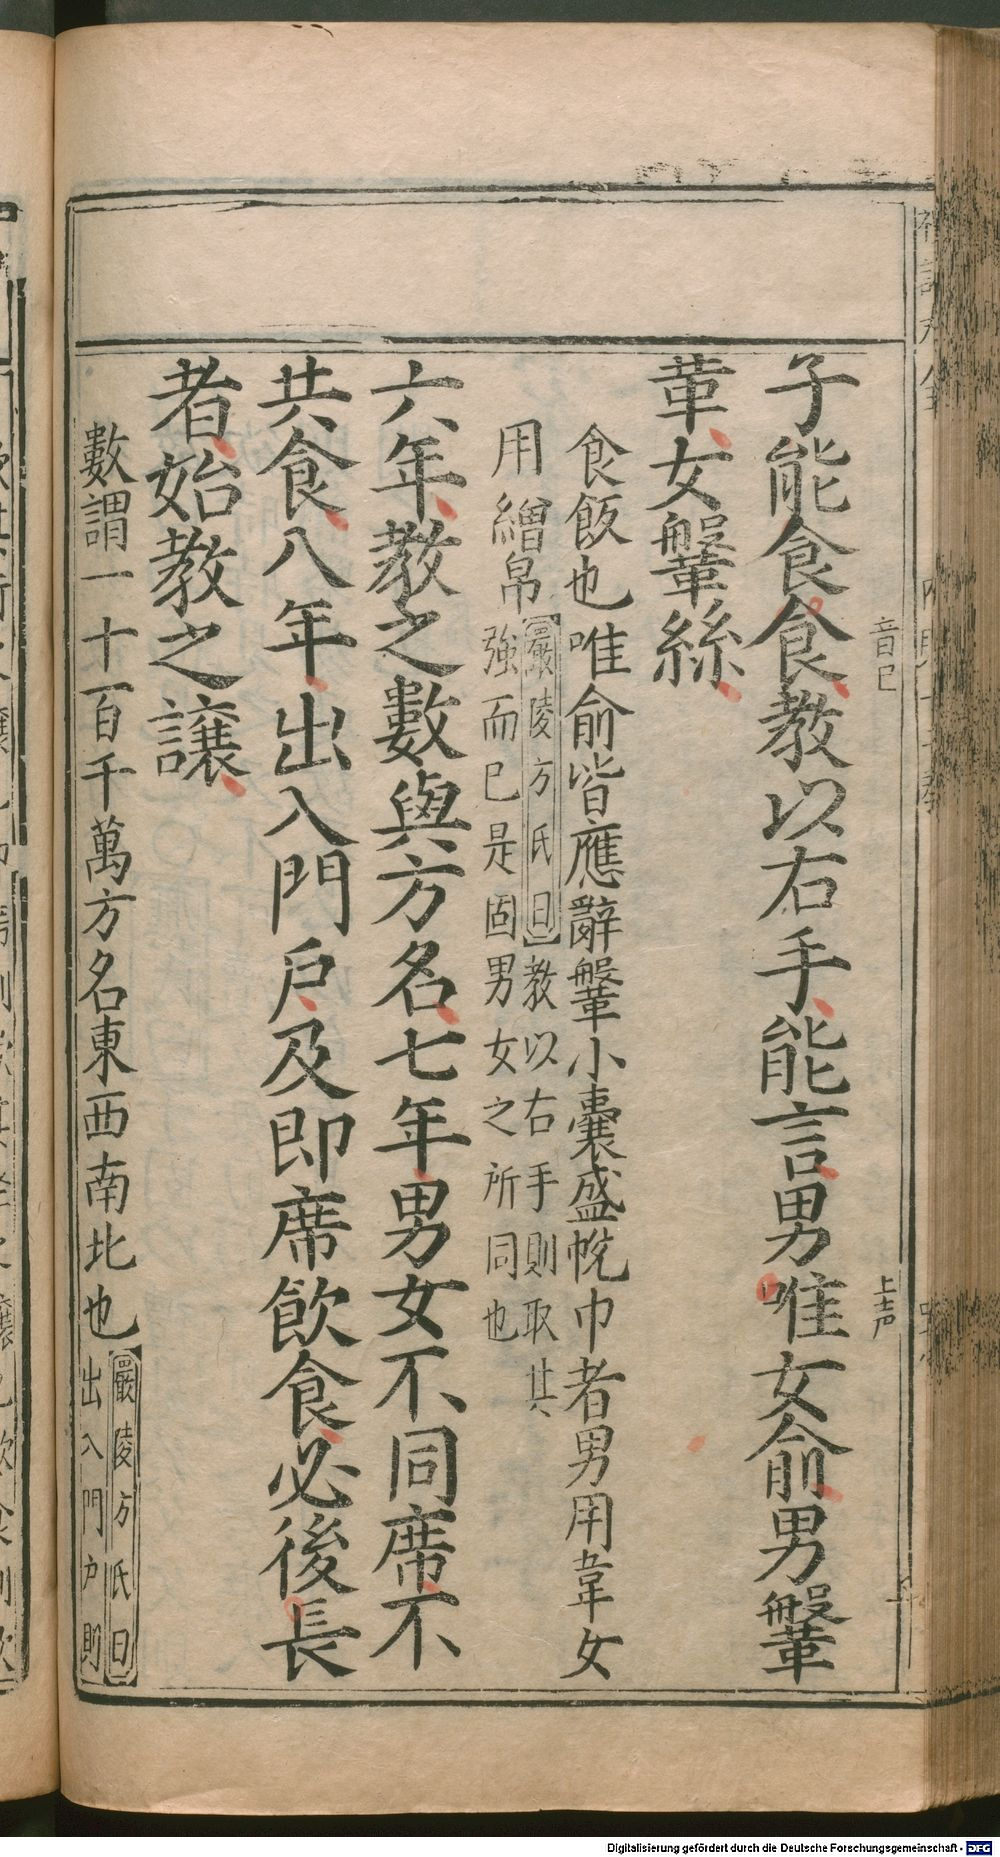 子能食食教以右手能言男唯女俞男鞶
音巳
上声
革女鞶絲
食飯也唯俞皆應辭鞶小囊盛帨巾者男用韋女
用繒帛
嚴陵方氏曰教以右手則取其
強而已是固男女之所同也
六年教之數與方名七年男女不同席不
共食八年出入門戶及即席飲食必後長
者始教之讓
數謂一十百千萬方名東西南北也
嚴陵方氏曰
出入門戶則
Digitalisierung gefördert durch die Deutsche Forschungsgemeinschaft - DFG